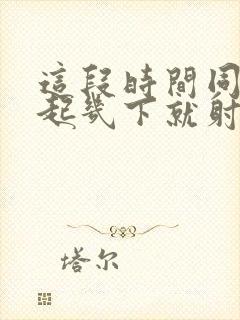 這段時間同
起幾下就射
塔尔